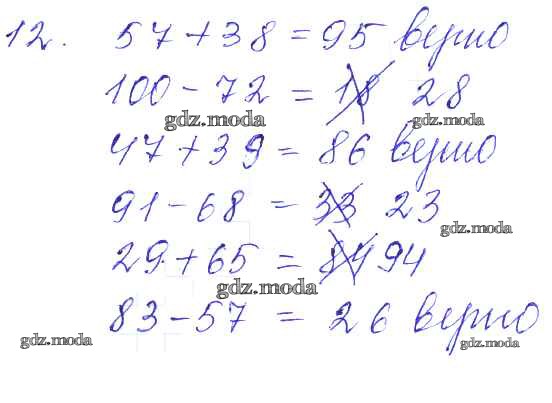 12. 57+38=95 верно
100-72=18 28
gdz.moda gdz.moda
47+39=86 верно
91-68=33 23
gdz.moda
29+65=84 94
gdz.moda
83-57=26 верно
gdz.moda gdz.moda